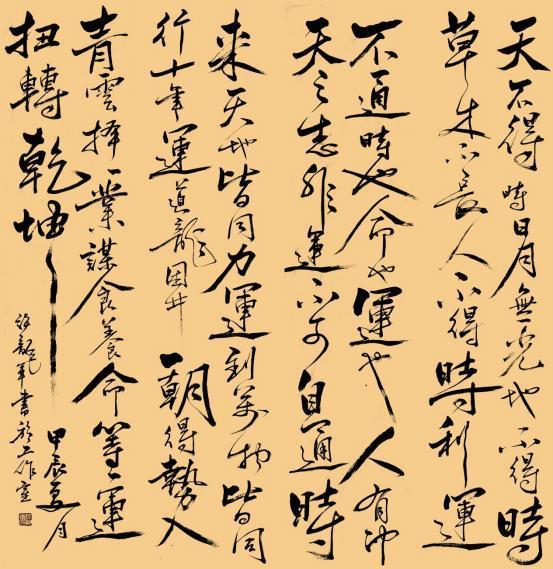 天不得時日月無光地不得時
草木不長人不得時利運
不通時也命也運也人有沖
天之志非運不可自通時
來天地皆同力運到萬物皆同
行十年運道龍困井一朝得勢入
青雲擇一業謀食養命等運
扭轉乾坤
甲辰夏月
龍軍書於工作室